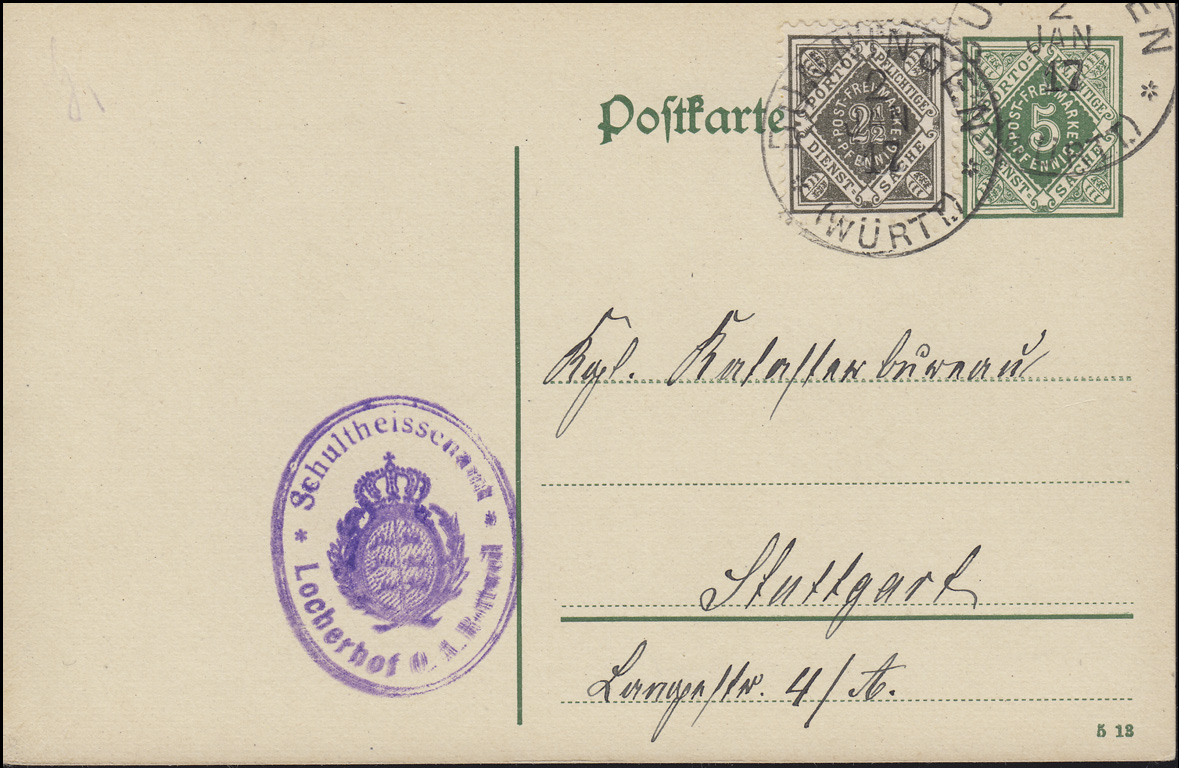 Postkarte
PORTO PFLICHTIGE
POST-FREIMARKE
2½
PFENNIG
DIENST-SACHE
2
JAN
17
(WÜRTT.)
PORTO-PFLICHTIGE
POST-FREIMARKE
5
PFENNIG
DIENST-SACHE
2
JAN
17
Kgl. Katasterbureau
Stuttgart
Langestr. 4/A.
* Schultheissenamt *
Locherhof O. A. Rottweil
5 13